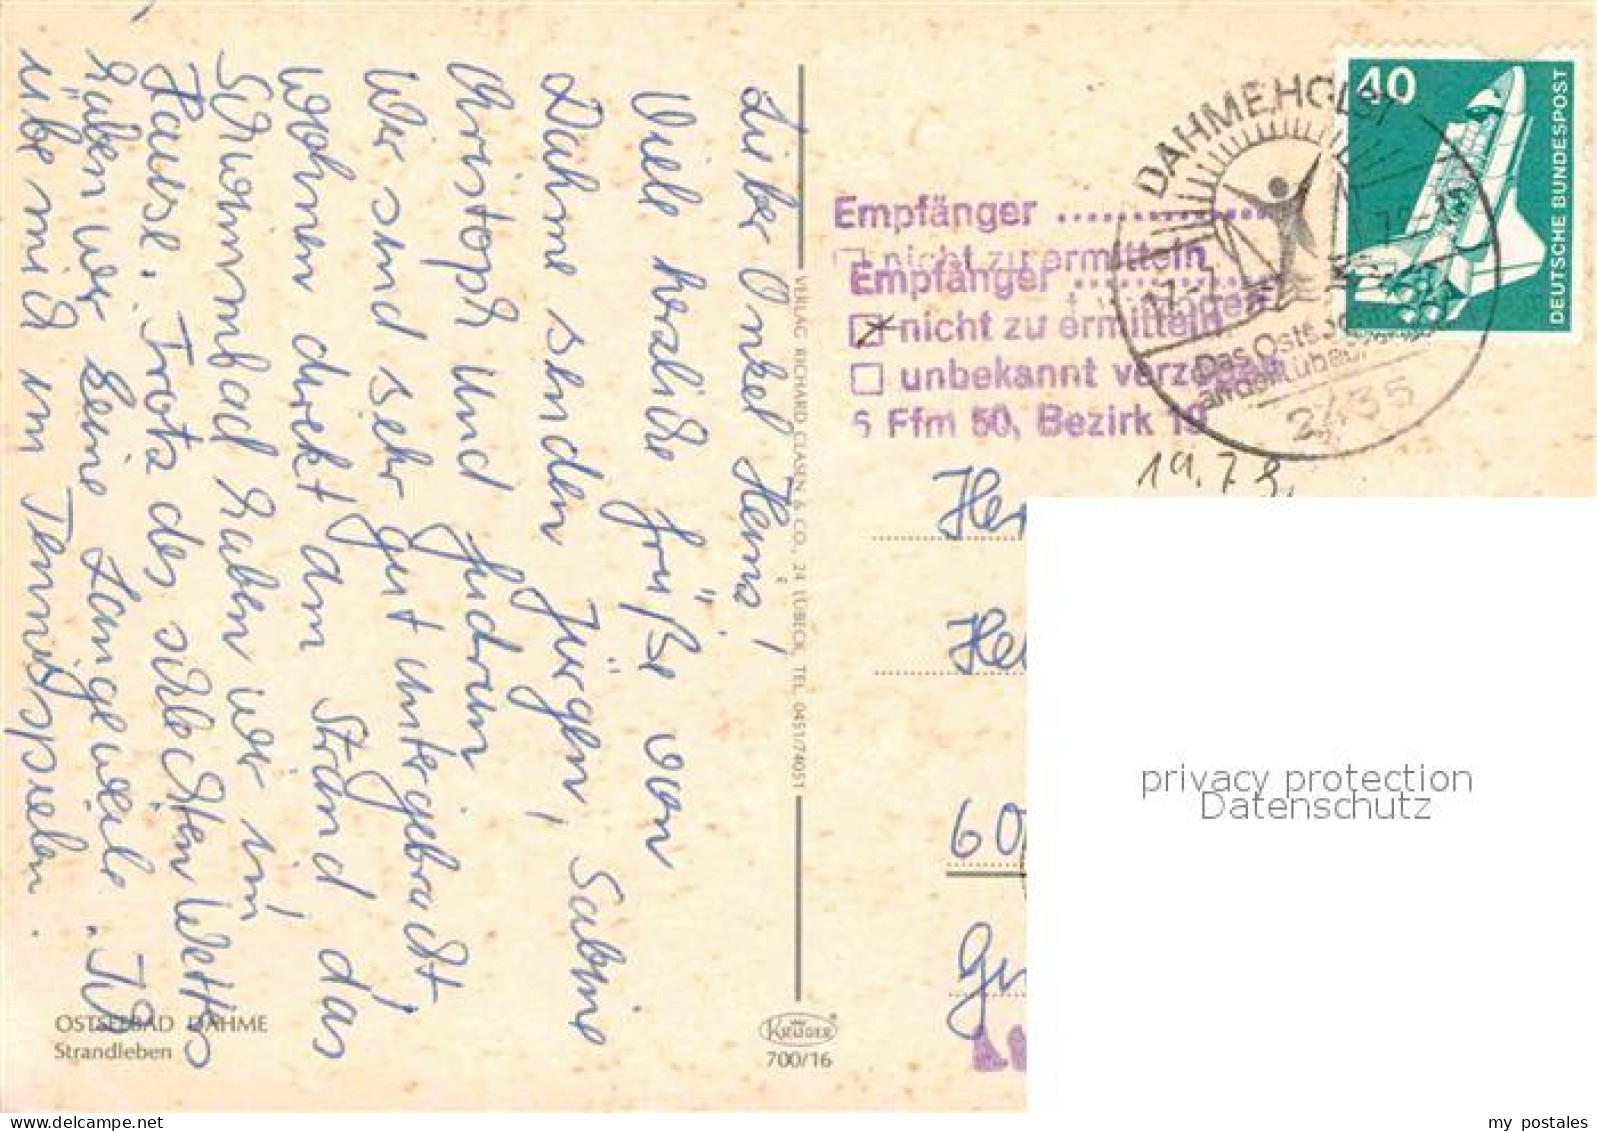 Lieber Onkel Heins!
Viele herzliche Grüße von
Dahme senden Jürgen, Sabine
Christoph und Gudrun
Wir sind sehr gut untergebracht,
wohnen direkt am Strand das
Schwimmbad haben wir im
Hause. Trotz des schlechten Wetters
haben wir keine Langeweile. Ich
übe mich im Tennisspielen.
OSTSEEBAD DAHME
Strandleben
VERLAG RICHARD CLASEN & CO., 24 LÜBECK, TEL. 0451/74051
KRÜGER
700/16
Empfänger
nicht zu ermitteln
Empfänger
nicht zu ermitteln
unbekannt verzogen
6 Ffm 50, Bezirk 19
DAHMEHOLST
Das Ostse
an der Lübe
2435
40
DEUTSCHE BUNDESPOST
19.7.
Her
Hei
60
privacy protection
Datenschutz
my_postales